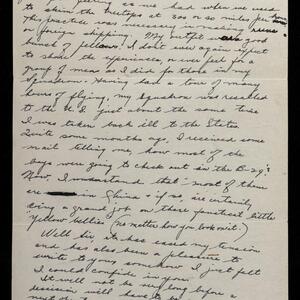 as we had when we used
to skim the treetops at 300 or so miles per hour
This practice was necessary in making runs
or foreign shipping. My outfit was a good
bunch of fellows. I don't ever again expect
to share the experiences, or ever feel for a
group of men as I did for those in my
Squadron. Having had a tour of many
hours of flying, my Squadron was recalled
to the U.S. just about the same time
I was taken back ill to the States.
Quite some months ago, I received some
mail telling me, how most of the
boys were going to check out in the B-29's.
Now, I understand that most of them
are in China & if so, are certainly
doing a grand job on those little
yellow bellies (no matter how you look at it).
Well Sir, it has eased my tension
and has also been a pleasure to
write to you, somehow I just felt
I could confide in you.
It will not be very long before a
decision will have to be